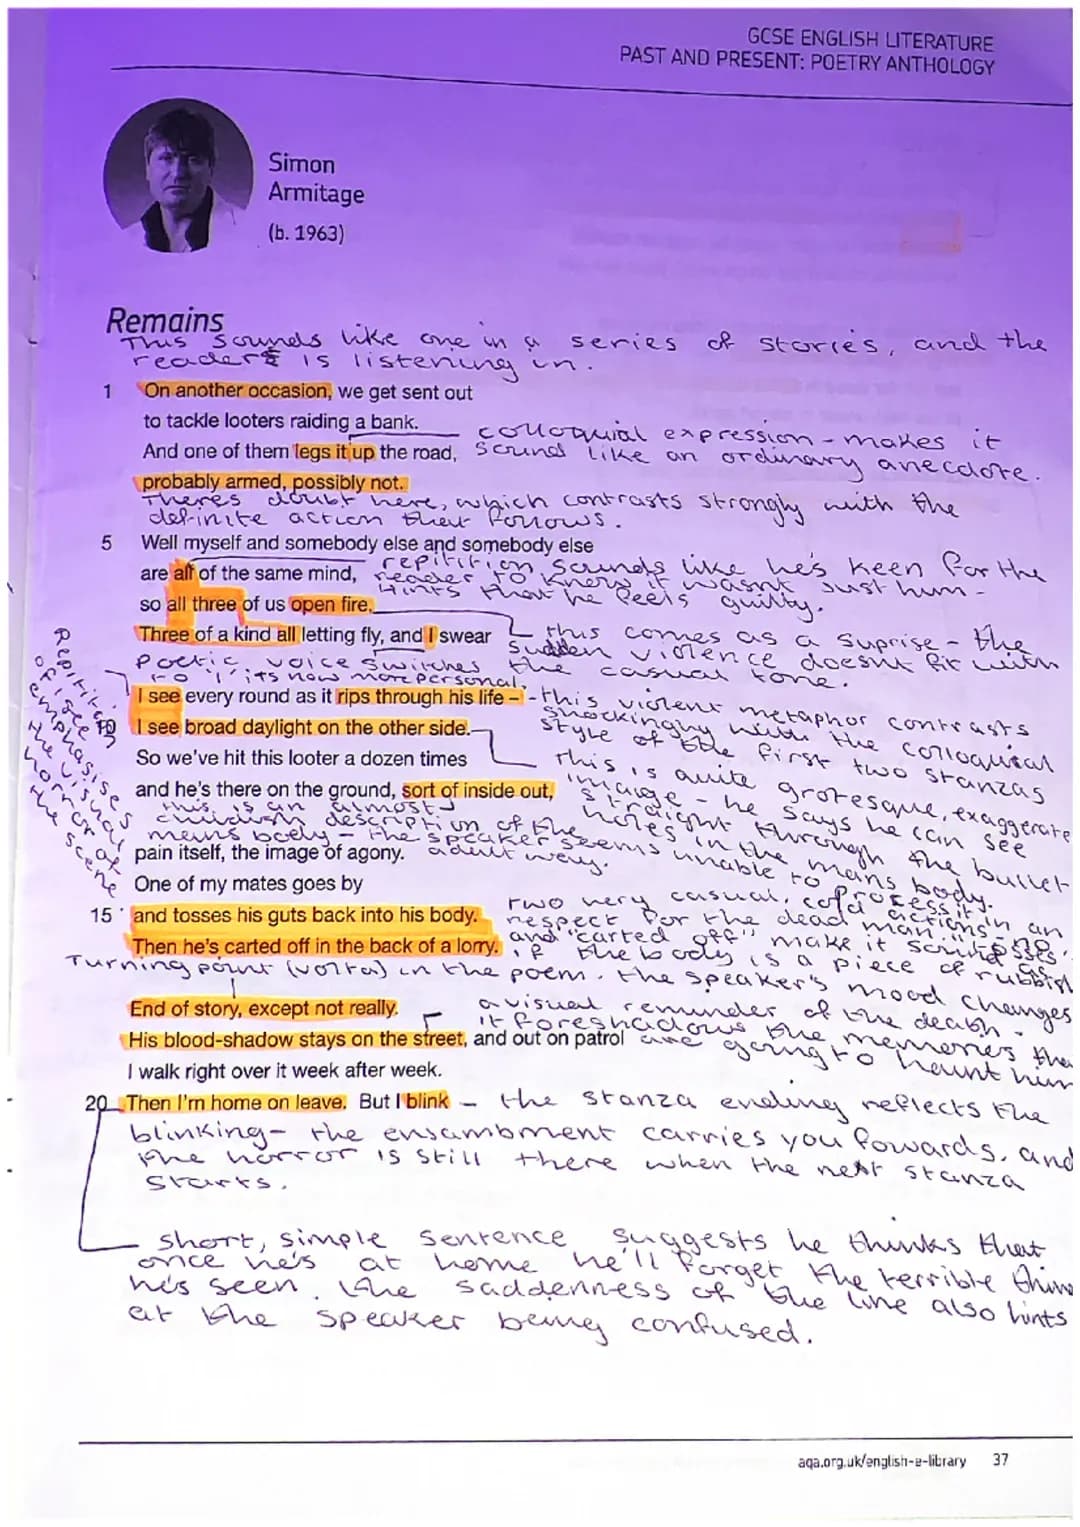 GCSE ENGLISH LITERATURE
PAST AND PRESENT: POETRY ANTHOLOGY
Simon
Armitage
(b. 1963)
Remains
This sounds like one in a series of stories, and the
reader is listening in.
1 On another occasion, we get sent out
to tackle looters raiding a bank.
colloquial expression - makes it
And one of them legs it up the road,
sound like an ordinary anecdote.
probably armed, possibly not.
Theres doubt here, which contrasts strongly with the
definite action that follows.
5 Well myself and somebody else and somebody else
repitition sounds like he's keen for the
are all of the same mind,
reader to know it wasnt just him -
hints that he feels guilty.
so all three of us open fire.
Three of a kind all letting fly, and I swear
this comes as a suprise - the
sudden violence doesnt fit with
the casual tone.
Poetic voice switches
to 'I' its now more personal.
I see every round as it rips through his life –
- this violent metaphor contrasts
shockingly with the colloquial
style of the first two stanzas
10 I see broad daylight on the other side.
So we've hit this looter a dozen times
this is quite grotesque, exaggerate
image - he says he can see
straight through the bullet
holes in the mans body.
and he's there on the ground, sort of inside out,
this is an almost
childish description of the
mans body - the speaker seems unable to process it in an
adult way.
Repitition
of 'I see'
emphasise
the visual
horror of
the scene
pain itself, the image of agony.
One of my mates goes by
15 and tosses his guts back into his body.
Then he's carted off in the back of a lorry.
Two very casual, cold actions - no
respect for the dead man. "tosses"
and "carted off" make it sound as
if the body is a piece of rubbish
Turning point (volta) in the poem. the speaker's mood changes
End of story, except not really.
a visual reminder of the death.
it foreshadows the memories tha
are going to haunt him
His blood-shadow stays on the street, and out on patrol
I walk right over it week after week.
20 Then I'm home on leave. But I blink
- the stanza ending reflects the
blinking - the ensambment carries you fowards, and
the horror is still there when the next stanza
starts.
short, simple sentence suggests he thinks that
once he's at home he'll forget the terrible thing
he's seen. the saddenness of the line also hints
at the speaker being confused.
aqa.org.uk/english-e-library 37